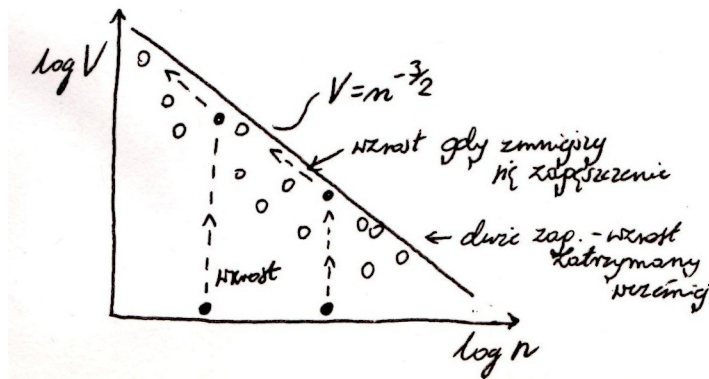 log V
V=n^-3/2
wzrost gdy zmniejszy
się zagęszczenie
duże zag. - wzrost
zatrzymany
wcześniej
wzrost
log n